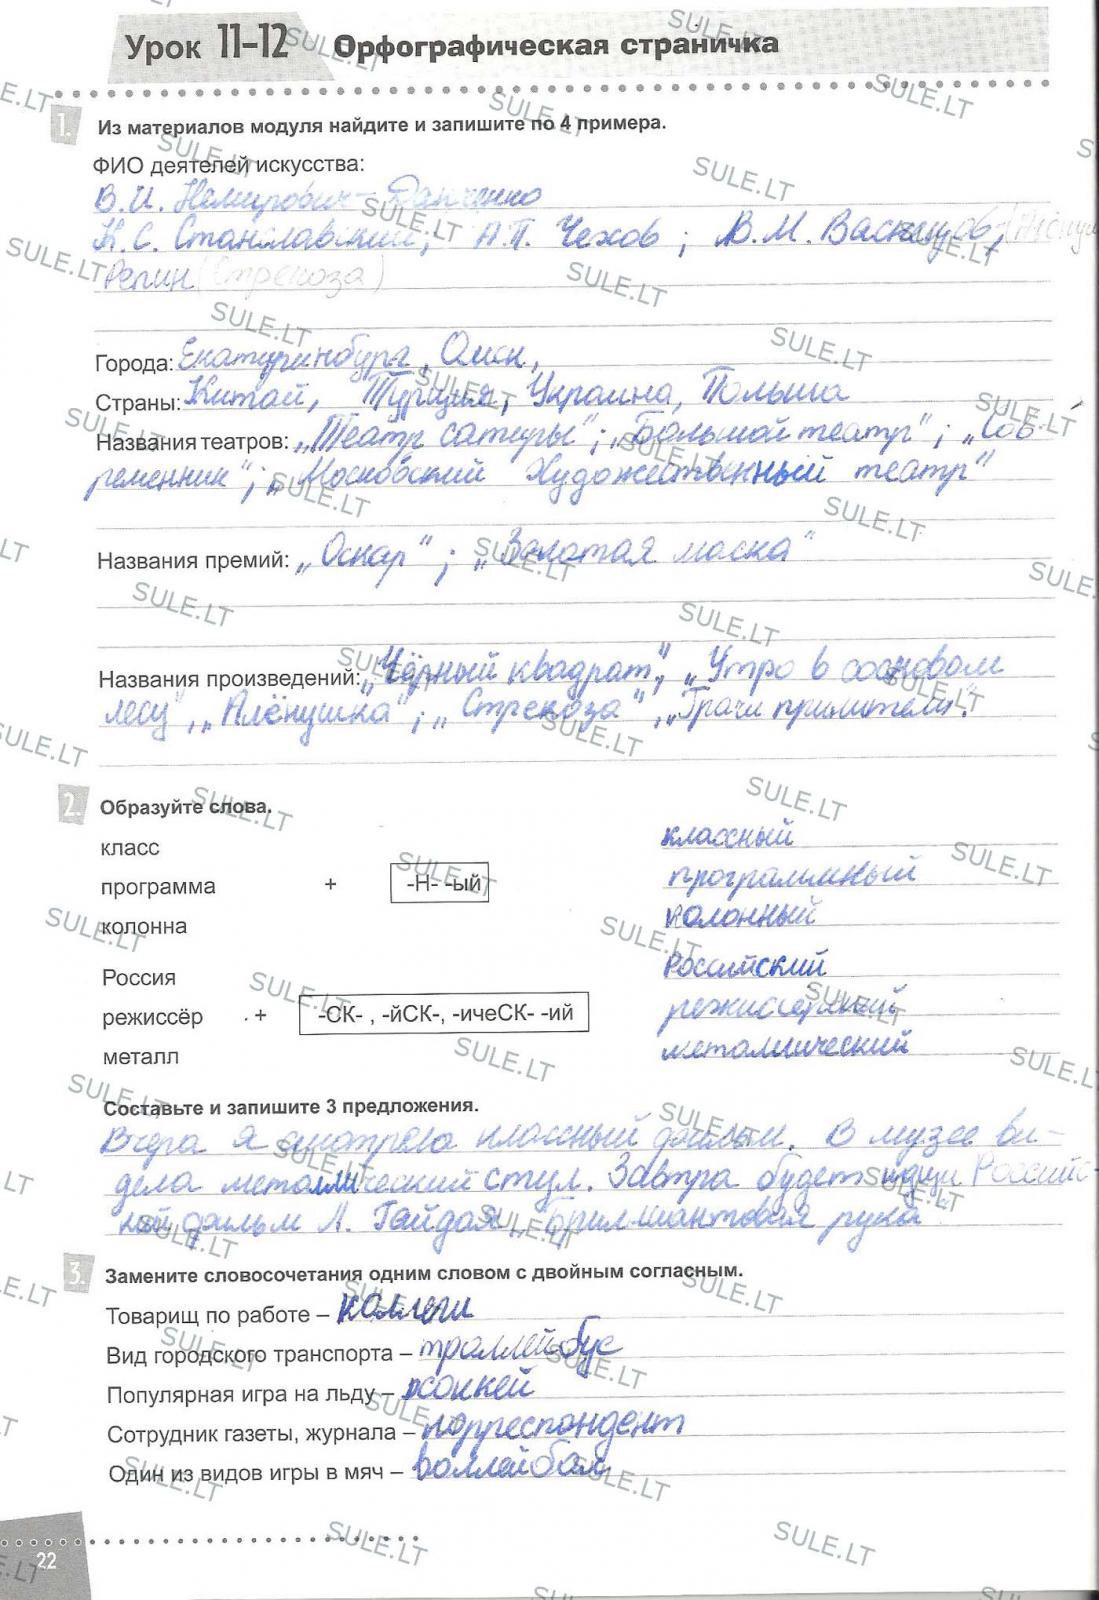 Урок 11-12 Орфографическая страничка
1. Из материалов модуля найдите и запишите по 4 примера.
ФИО деятелей искусства:
В.И. Немирович-Данченко
К.С. Станиславский; А.П. Чехов; В.М. Васнецов,
Репин (Стрекоза)
Города: Екатеринбург, Омск,
Страны: Китай, Турция, Украина, Польша
Названия театров: „Театр сатиры"; „Большой театр"; „Сов
ременник"; „Московский Художественный театр"
Названия премий: „Оскар"; „Золотая маска"
Названия произведений: „Чёрный квадрат", „Утро в сосновом
лесу", „Алёнушка"; „Стрекоза", „Грачи прилители".
2. Образуйте слова.
класс классный
программа + -Н- -ый программный
колонна колонный
Россия Российский
режиссёр + -СК- , -йСК-, -ичеСК- -ий режиссёрский
металл металлический
Составьте и запишите 3 предложения.
Вчера я смотрела классный фильм. В музее ви-
дела металлический стул. Завтра будет идти Российс-
кий фильм Л. Гайдая „Бриллиантовая рука"
3. Замените словосочетания одним словом с двойным согласным.
Товарищ по работе – коллеги
Вид городского транспорта – троллейбус
Популярная игра на льду – хоккей
Сотрудник газеты, журнала – корреспондент
Один из видов игры в мяч – воллейбол
22
SULE.LT